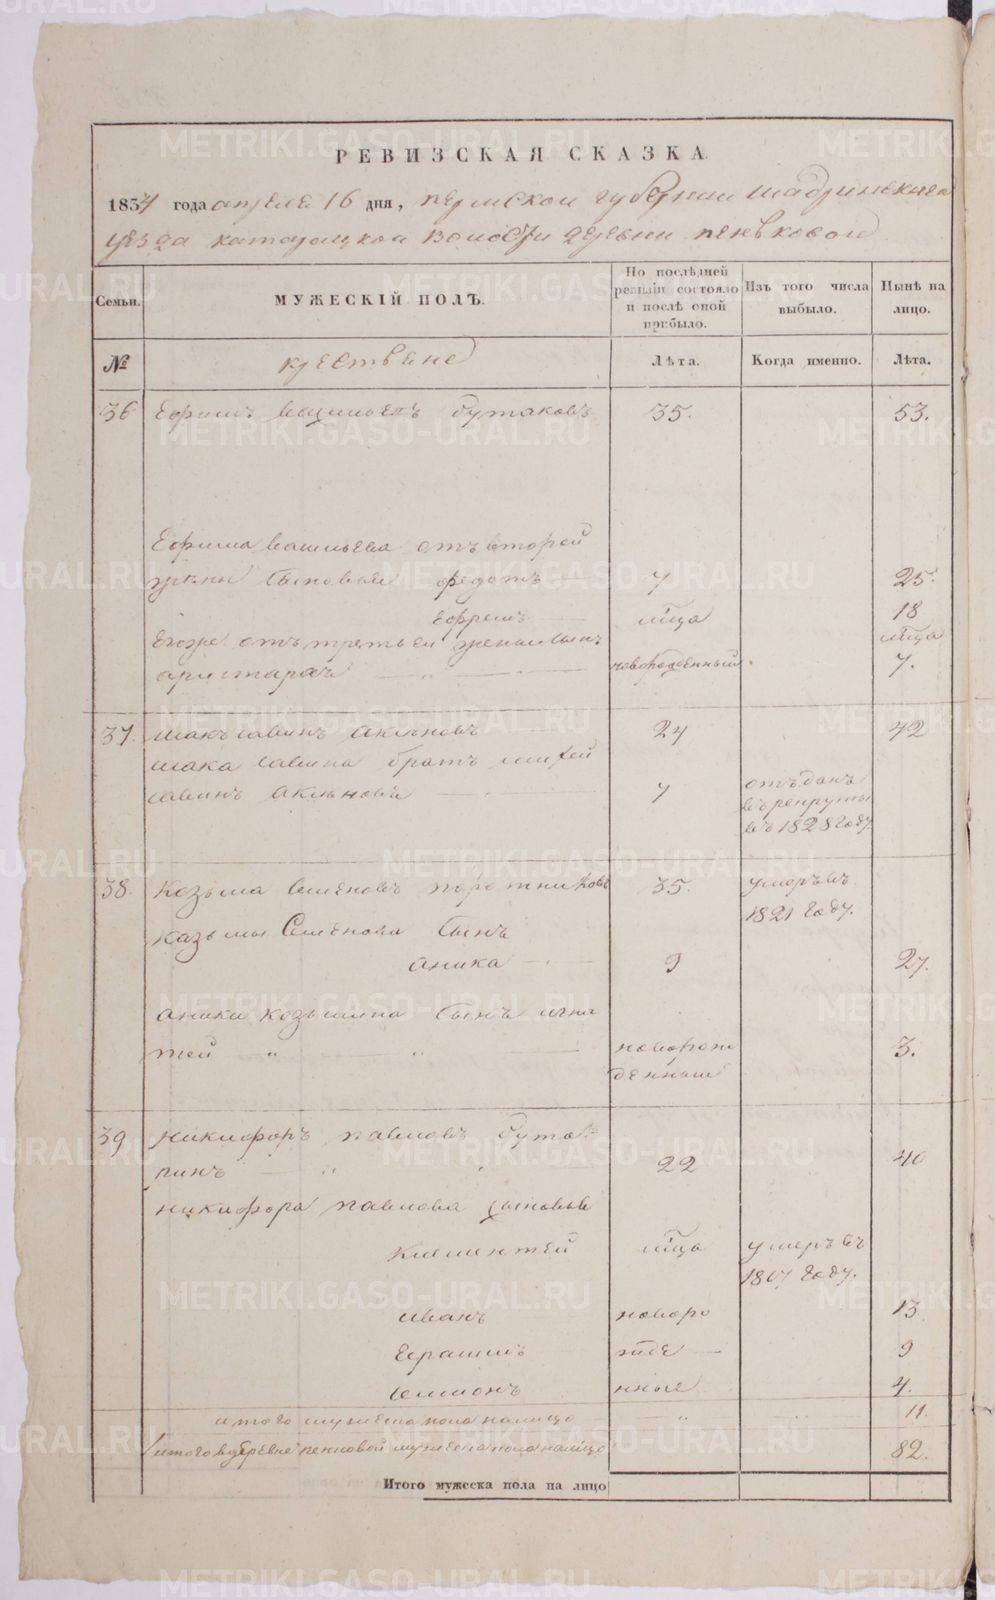 РЕВИЗСКАЯ СКАЗКА
1834 года апреля 16 дня, пермской губернии шадринскаго
уезда катайцкой волости деревни пеньковой
Семьи.
МУЖЕСКІЙ ПОЛЪ.
По послѣдней ревизіи состояло и послѣ оной прибыло.
Изъ того числа выбыло.
Нынѣ на лицо.
№
крестьяне
Лѣта.
Когда именно.
Лѣта.
36 Ефимъ васильевъ бутаковъ 35. 53.
Ефима васильева отъ второй
жены сыновья федотъ 7 25.
Ефремъ мѣсяца 18
Егоже отъ третьей жены сынъ мѣсяца
аристархъ — „ — новорожденный. 7.
37. савинъ акиновъ 24 42
савина братъ
савинъ акиновъ 7 отъданъ
въ рекруты
въ 1828 году.
38. Козьма семеновъ поротниковъ 35. умеръ въ
1821 году.
казьмы Семенова сынъ
аника 9 27.
аники козьмина сынъ игна
тей „ „ новорож 3.
денный
39 никифоръ павловъ бута=
ринъ „ 22 40
никифора павлова сыновья
климентей мѣсяца умеръ въ
1817 году.
иванъ новоро 13.
Ерасимъ жде 9
семионъ нные 4.
итого мужеска пола налицо „ 11.
итого в деревне пенковой мужеска пола налицо 82.
Итого мужеска пола на лицо
METRIKI.GASO-URAL.RU